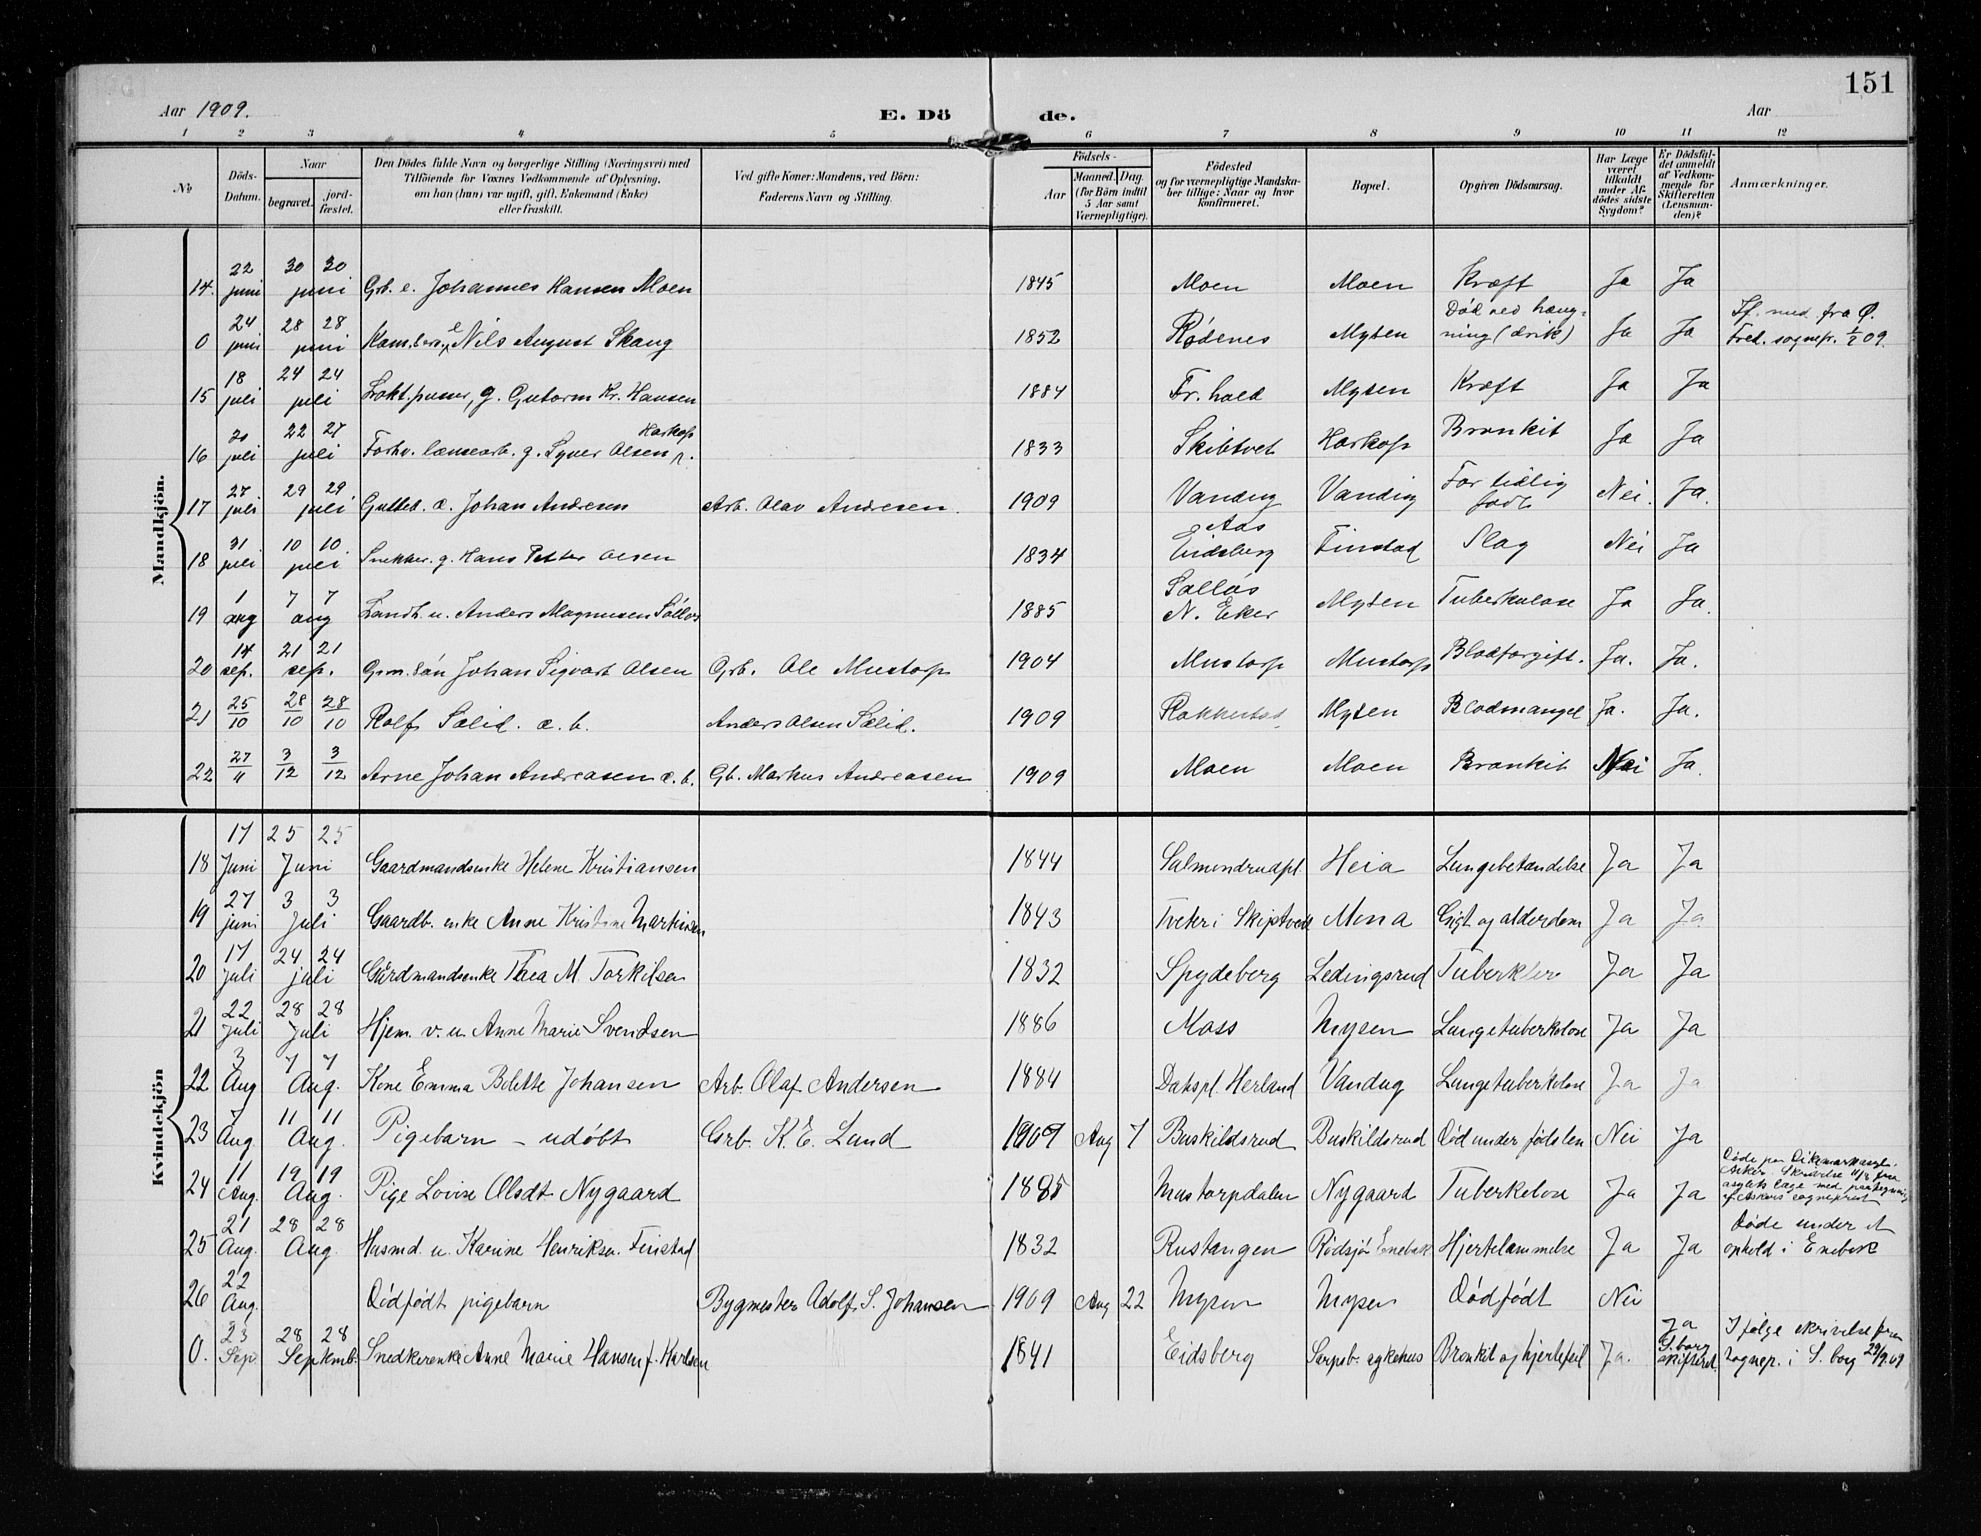 151
Aar 1909.
E. Dö de.
Aar
1 2 3 4 5 6 7 8 9 10 11 12
No
Döds-Datum.
Naar
begravet.
jord-fæstet.
Den Dödes fulde Navn og borgerlige Stilling (Næringsvei) med
Tilföiende for Voxnes Vedkommende af Oplysning,
om han (hun) var ugift, gift, Enkemand (Enke)
eller fraskilt.
Ved gifte Koner: Mandens, ved Börn:
Faderens Navn og Stilling.
Födsels-
Aar
Maaned. Dag.
(for Börn indtil
5 Aar samt
Værnepligtige).
Födested
og for værnepligtige Mandska-
ber tillige: Naar og hvor
konfirmeret.
Bopæl.
Opgiven Dödsaarsag.
Har Læge
været
tilkaldt
under Af-
dödes sidste
Sygdom?
Er Dödsfal-
det anmeldt
af Vedkom-
mende for
Skifteretten
(Lensman-
den)?
Anmærkninger.
Mandkjön.
14. 22 juni 30 30 juni Grb. e. Johannes Hansen Moen 1845 Moen Moen Kræft Ja Ja
0 24 juni 28 28 juni e Nils August Skaug 1852 Rødenes Mysen Død ved hæng-
ning (drik) Ja Ja fra Ø.
Fred. sognepr. 09.
15 18 juli 24 24 juli g. Gutorm Kr. Hansen 1884 Fr. hald Mysen Kræft Ja Ja
16 20 juli 22 27 juli Forhv. lænsearb. g. Syver Olsen 1833 Skibtvet Bronkit Ja Ja
17 27 juli 29 29 juli Gutteb. Johan Andresen Arb. Olav Andresen. 1909 Vandug Vandug For tidlig
født Nei. Ja.
18 31 juli 10 10 juli Snekker. g. Hans Petter Olsen 1834 Aas
Eidsberg Finstad Slag Nei Ja
19 1 aug 7 7 aug Landh. u. Anders Magnusen Sölløs 1885 Solløs
N. Eker Mysen Tuberkulose Ja Ja.
20 14 sep. 21 21 sep. Grm. sön Johan Sigvart Olsen Grb. Ole Mustorp 1904 Mustorp Mustorp Blodforgift. Ja. Ja.
21 25/10 28/10 28/10 Rolf Sælid. Anders Olsen Sælid. 1909 Rakkestad Mysen Blodmangel Ja. Ja.
22 27/11 3/12 3/12 Arne Johan Andreasen Gb. Markus Andreasen 1909 Moen Moen Bronkit Nei Ja.
Kvindekjön
18 17 Juni 25 25 Juni Gaardmandsenke Helene Kristiansen 1844 Salmondrudpl. Heia Lungebetændelse Ja Ja
19 27 juni 3 3 Juli Gaardb. enke Anne Kristine Martinsen 1843 Tveter i Skiptvedt Mona Gigt og alderdom Ja Ja
20 17 juli 24 24 juli Gårdmandsenke Thea M. Torkilsen 1832 Spydeberg Ledingsrud Ja Ja
21 22 Juli 28 28 Juli Hjem. v. u. Anne Marie Svendsen 1886 Moss Mysen Lungetuberkolose Ja Ja
22 3 Aug 7 7 Aug. Kone Emma Bolette Johansen Arb. Olaf Andersen 1884 Herland Vandug Lungetuberkolose Ja Ja
23 7 Aug. 11 11 Aug. Pigebarn – udøbt Grb. K. E. Lund 1909 Aug 7 Buskildsrud Buskildsrud Död under fødslen Nei Ja
24 11 Aug. 19 19 Aug. Pige Lovise Olsdt. Nygaard 1885 Mustorpdalen Nygaard Tuberkolose Ja Ja Døde paa Dikemark asyl.
Asker. Skrivelse 11/8 fra
asylets læge med paategning
af Askers sogneprest
25 21 Aug. 28 28 Aug. Husmd. u. Karine Henriksen Finstad 1832 Rustangen Rödsjö Enebak Hjertelammelse Ja Ja Døde under et
ophold i Enebak
26 22 Aug. Dödfødt pigebarn Bygmester Adolf S. Johansen 1909 Aug 22 Mysen Mysen Dödfödt Nei
0. 23 Sep. 28 28 Septemb. Snedkerenke Anne Marie Hansen f. Karlsen 1841 Eidsberg Sarpsb. sykehus Bronkit og hjertefeil Ja. Ja
S.borg
skifteret. Ifølge skrivelse fra
sognepr. i S. borg 29/9.09